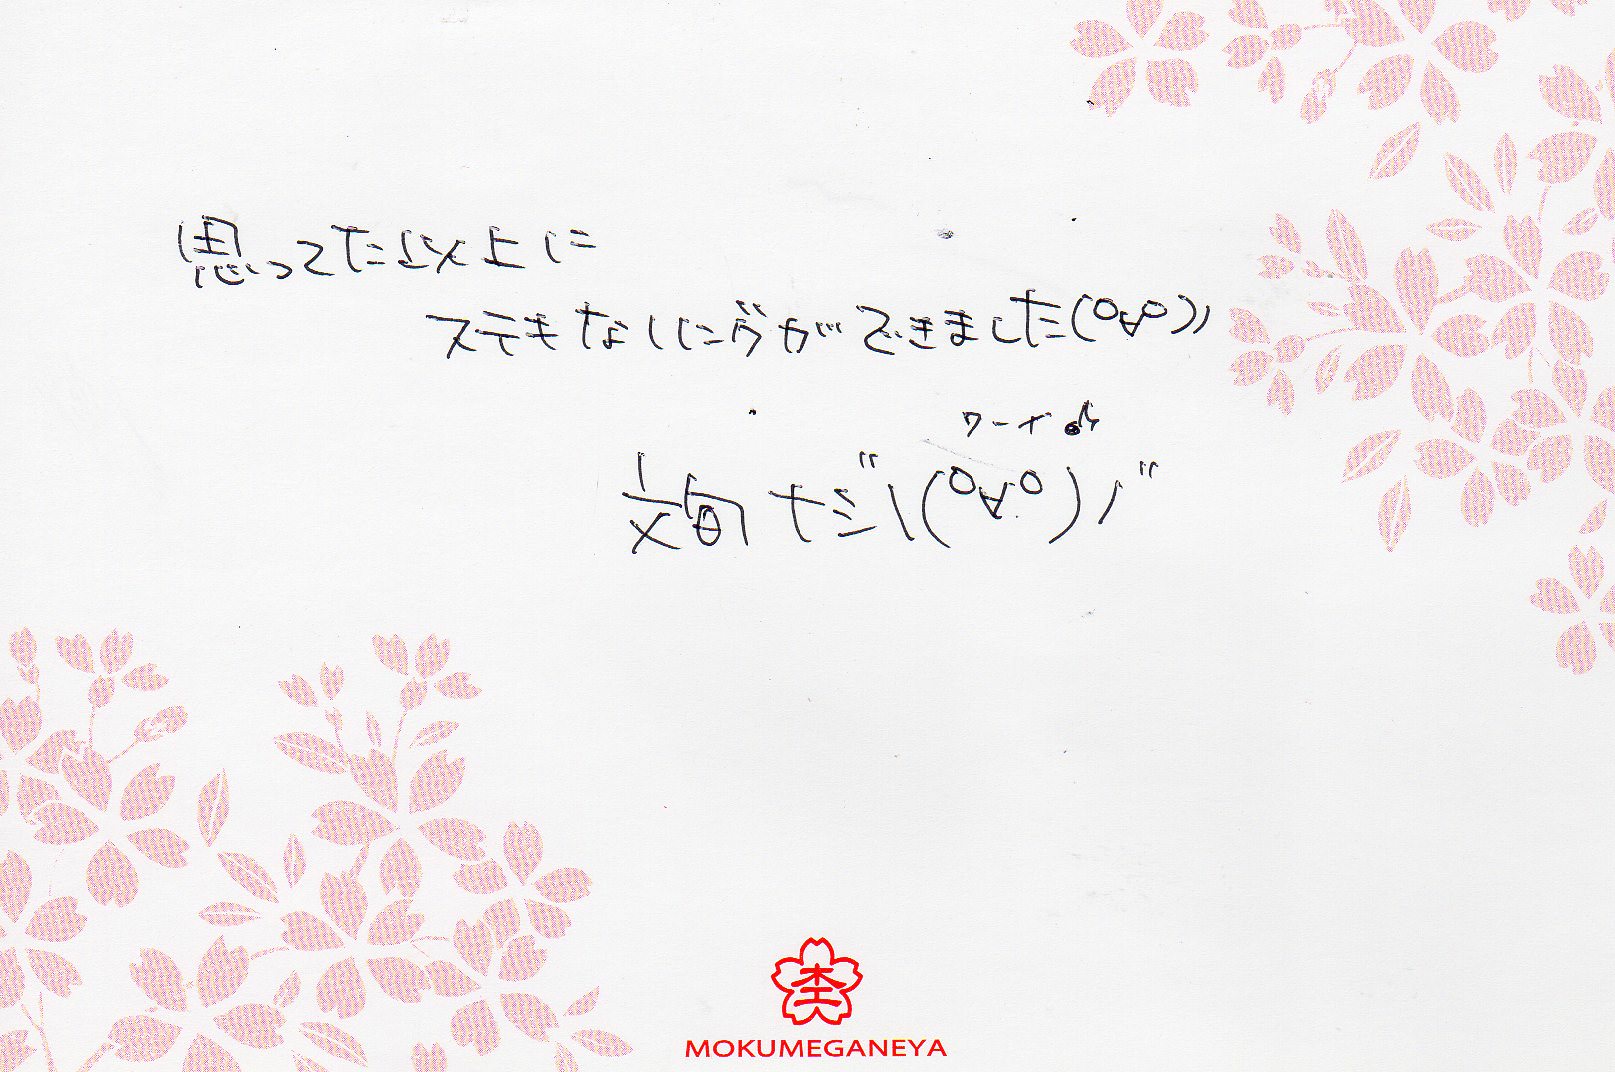 思ってた以上に
ステキなリングができました(°∀°)ﾉ
ワーイ♪
\(°∀°)ノ"
杢
MOKUMEGANEYA